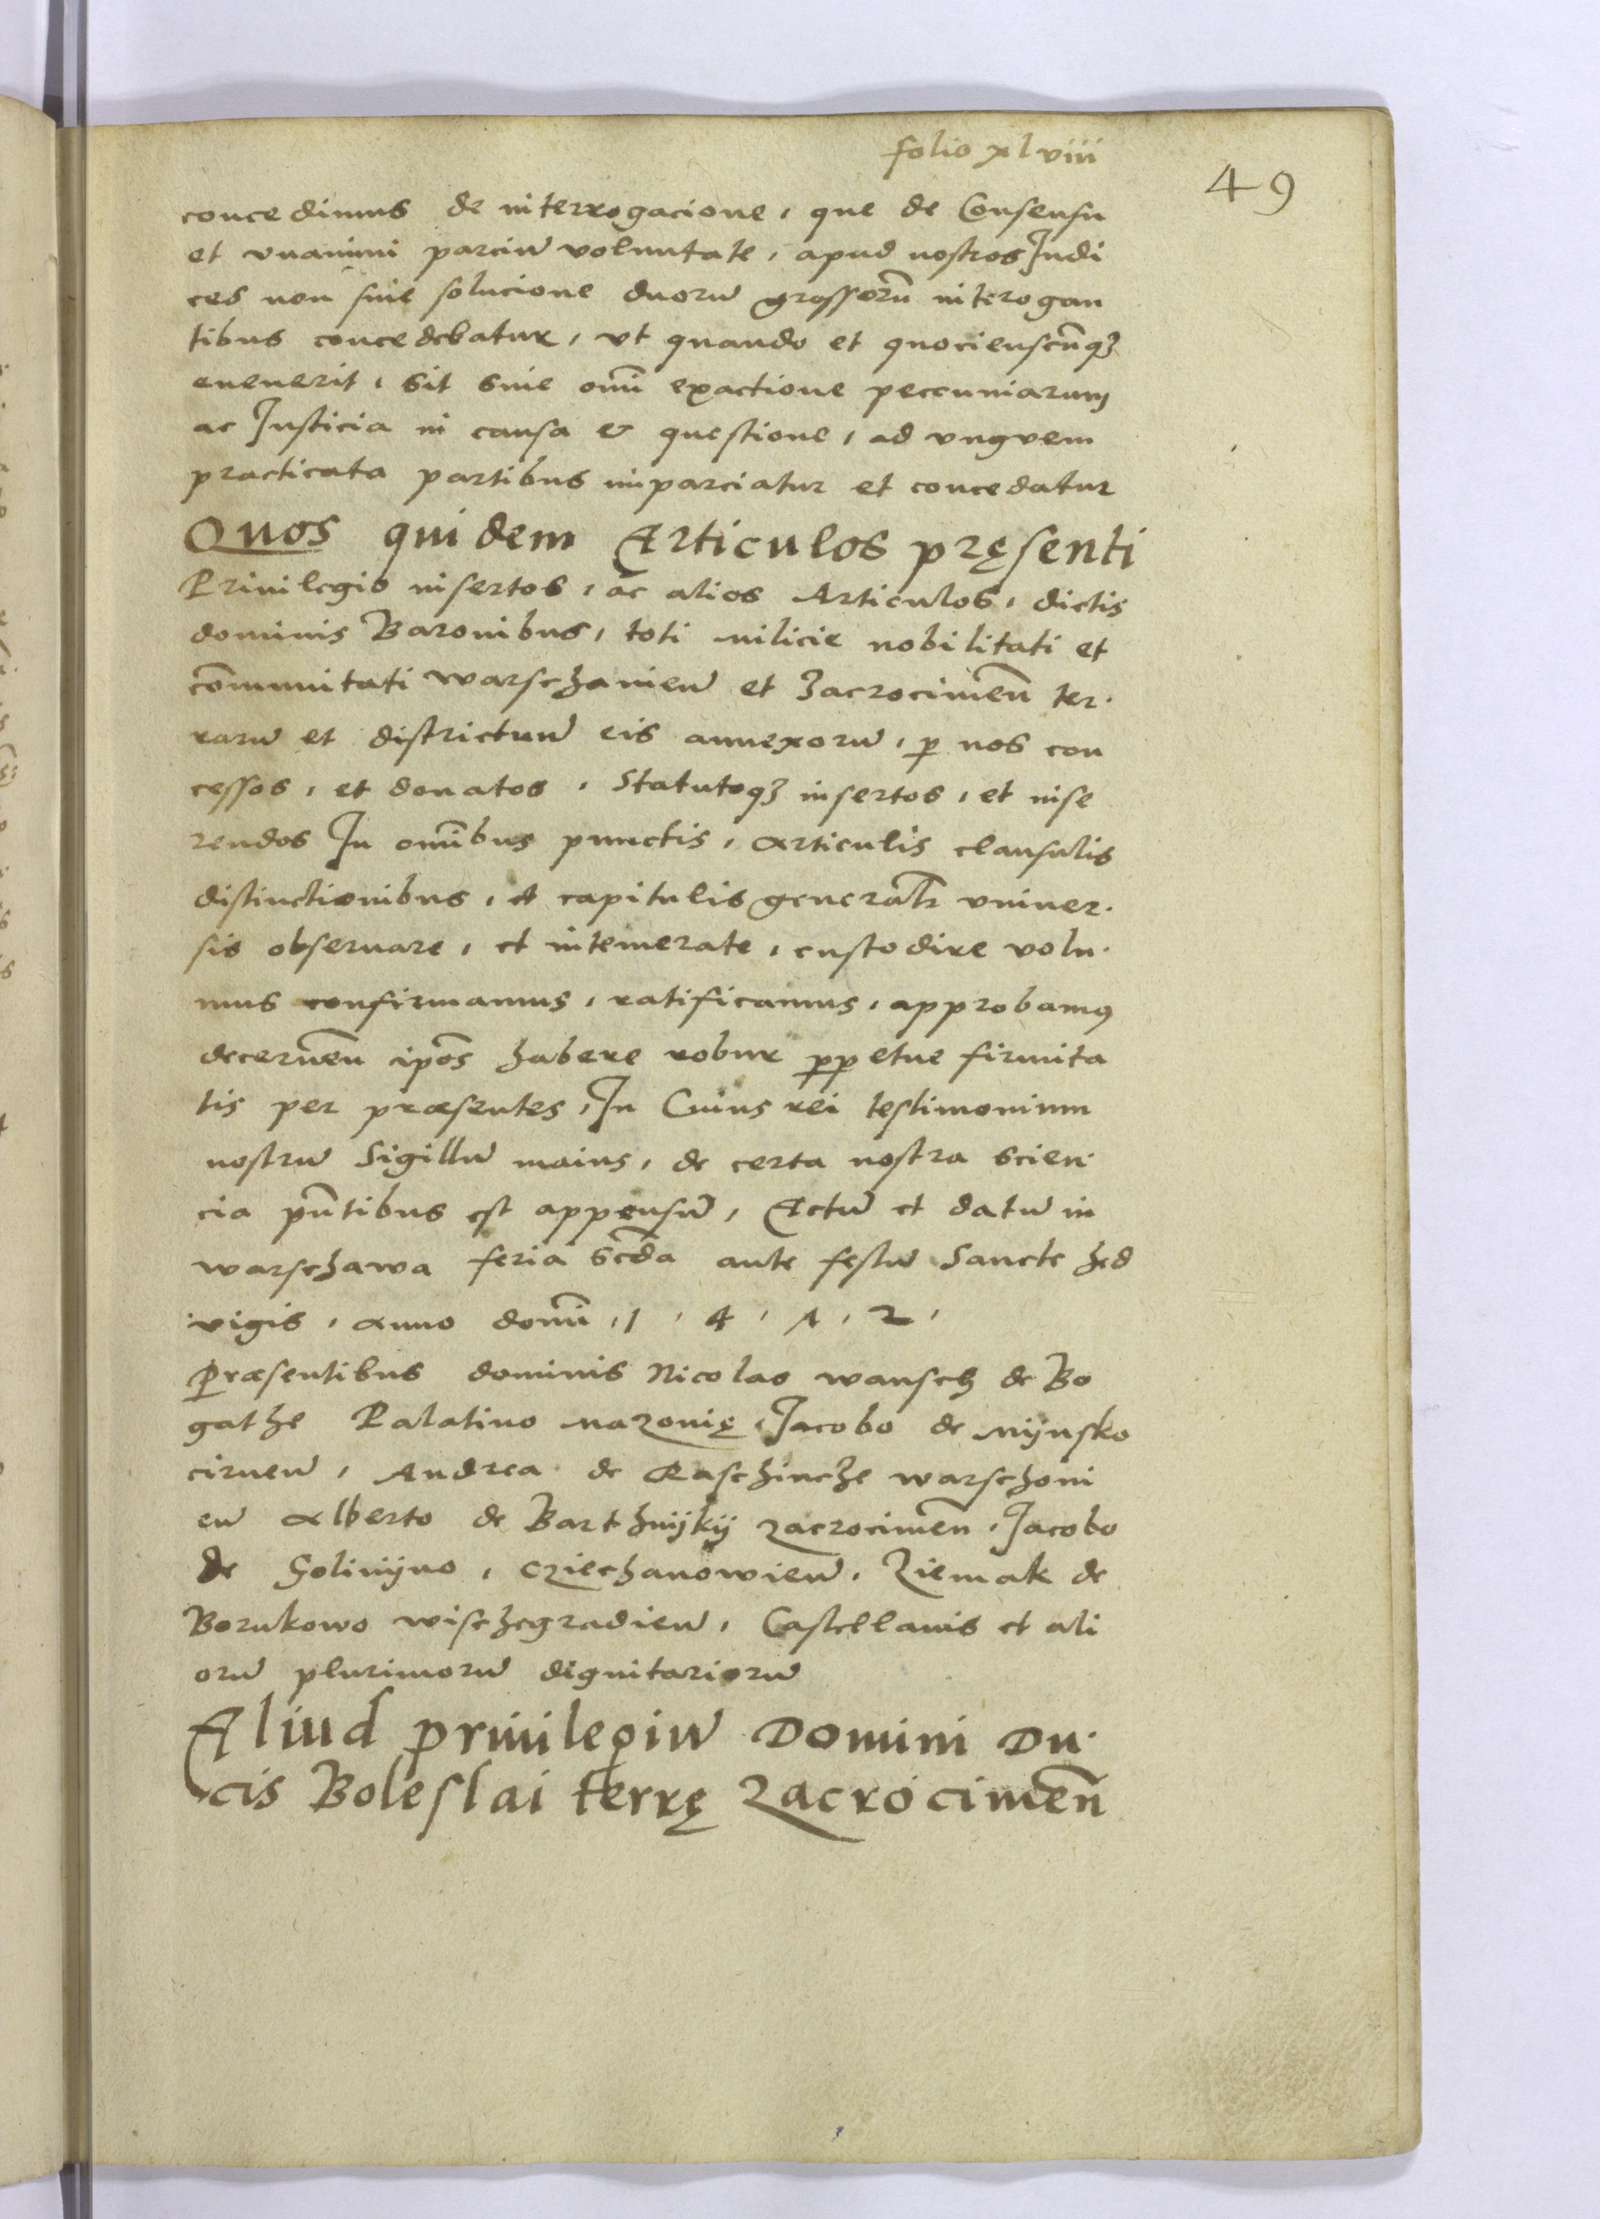 folio xlviii
49
concedimus de interrogacione, que de Consensu
et vnanimi parciū voluntate, apud nostros Judi
ces non sine solucione duorū grossorū interogan
tibus concedebatur, vt quando et quocienscūqꝫ
euenerit, sit sine omī exactione peccuniarum
ac Justicia in causa & questione, ad vnguem
practicata partibus imparciatur et concedatur
Quos quidem Articulos pręsenti
Priuilegio insertos, ac alios Articulos, dictis
dominis Baronibus, toti milicie nobilitati et
cōmunitati warschauieñ et Zacrocimeñ ter·
rarū et districtuū eis annexorū, ꝑ nos con
cessos, et donatos, Statutoqꝫ insertos, et inse
rendos In omībus punctis, articulis clausulis
distinctionibus, et capitulis generalr̄ vniuer·
sis obseruare, et intemerate, custodire volu·
mus confirmamus, ratificamus, approbamꝰ
decerneñ ip̄os habere robur ꝑꝑetue firmita
tis per præsentes, In Cuius rei testimonium
nostrū Sigillū maius, de certa nostra scien·
cia pn̄tibus est appensū, Actū et datū in
warschawa feria scd̄a ante festū Sancte Hed
vigis, anno domī, 1, 4, 1, 2,
Præsentibus dominis Nicolao wansch de Bo
gathe Palatino mazouię, Jacobo de mijnsko
cirneñ, Andrea de Raschincze warschoui
eñ Alberto de Barthnijkij zacrocimeñ, Jacobo
de Golimijno, Cziechanowieñ, Ziemak de
Borukowo wischegradieñ, Castellanis et ali
orū plurimorū dignitariorū
Aliud priuilegiū Domini Du·
cis Boleslai terrę Zacrocimeñ